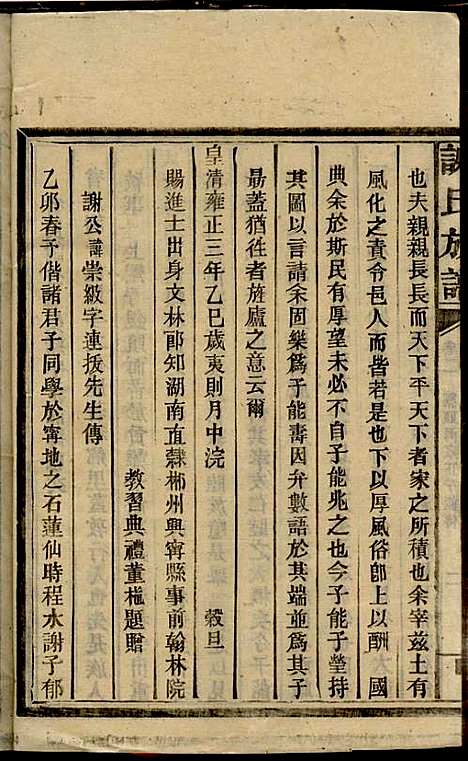 謝氏族譜
也夫親親長長而天下平天下者家之所積也余宰茲土有
風化之責令邑人人皆若是以下以厚風俗卽上以酬大國
典余於斯民有厚望未必不自子能兆之也今子能子瑩持
其圖以言請余固樂爲子能壽因弁數語於其端並爲其
勗蓋猶徃者旌廬之意云爾
皇清雍正三年乙巳歲夷則月中浣 穀旦
賜進士出身文林郎知湖南直隸郴州興寧縣事前翰林院
教習典禮董 題贈
謝公諱崇級字連扳先生傳
乙卯春予偕諸君子同學於寗地之石蓮仙時程水謝子郁